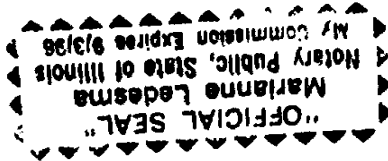 "OFFICIAL SEAL"
Marianne Ledesma
Notary Public, State of Illinois
My Commission Expires 9/3/96